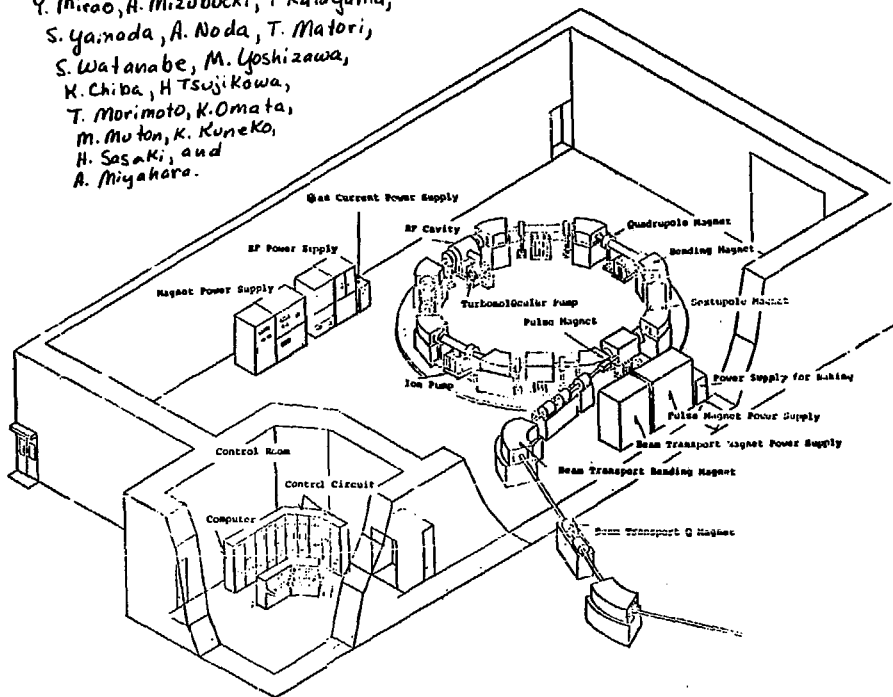 Y. Hirao, A. Mizobuchi, T Katayama,
S. Yamada, A. Noda, T. Matori,
S. Watanabe, M. Yoshizawa,
K. Chiba, H Tsujikowa,
T. Morimoto, K. Omata,
M. Muton, K. Kuneko,
H. Sasaki, and
A. Miyahara.
Bias Current Power Supply
RF Power Supply
RF Cavity
Quadrupole Magnet
Bending Magnet
Magnet Power Supply
Turbomolecular Pump
Sextupole Magnet
Pulse Magnet
Ion Pump
Power Supply for Baking
Pulse Magnet Power Supply
Beam Transport Magnet Power Supply
Control Room
Beam Transport Bending Magnet
Control Circuit
Computer
Beam Transport Q Magnet